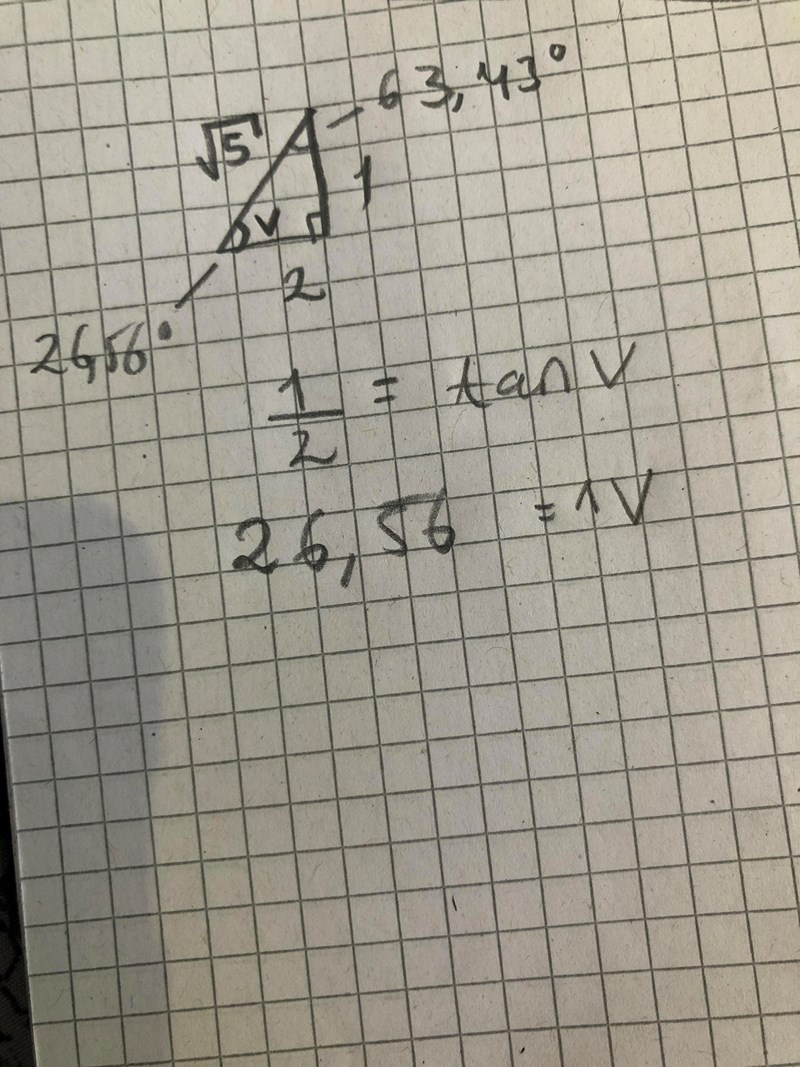 63,43°
√5
1
V
2
26,56°
1/2 = tan V
26,56 = 1V